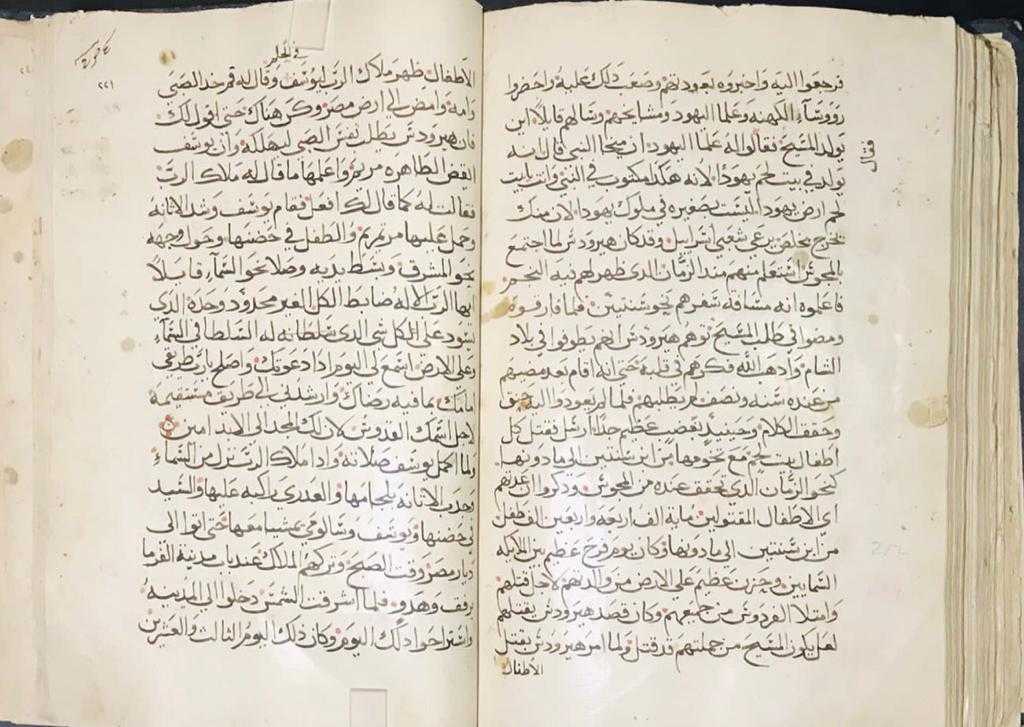 فرجعوا اليه واخبروه بعودتهم وصعب ذلك عليه واحضروا
روؤساء الكهنه وعلما اليهود ومشايخهم وسالهم قايلا اين
يولد المسيح فقالوا له علما اليهود ان ميخا النبي قال انه
يولد في بيت لحم يهودا لانه هكذا مكتوب في النبي وانت يابيت
لحم ارض يهودا لست بصغيره في ملوك يهودا لان منك
يخرج مخلص يرعي شعبي اسراييل وقد كان هيرودس لما اجتمع
بالمجوس استعلم منهم منذ الزمان الدى ظهر لهم فيه النجم
فاعلموه انه مسافة سفرهم نحو سنتين فلما فارقوه
ومضوا في طلب المسيح توهم هيرودس انهم يطوفوا في بلاد
الشام وادهب الله فكرهم من قلبه حتى انه اقام بعد مضيهم
من عنده سنه ونصف لم يطلبهم فلما لم يعودوا اليه حنق
وحقق الكلام وحينيد بغضب عظيم جدا ارسل فقتل كل
اطفال بيت لحم مع تخومها من ابن سنتين الى ما دونها
كنحو الزمان الدي تحقق عنده من المجوس ودكروا ان عدتهم
اي الاطفال المقتولين مايه الف اربعه واربعين الف طفل
من ابن سنتين الى ما دونها وكان يوم فرح عظيم بين الايكه
السمايين وحزن عظيم على الارض من والديهم لاجل قتلهم
وامتلا الفردوس من جميعهم وكان قصد هيرودس بقتلهم
لعل يكون المسيح من جملتهم قد قتل ولما امر هيرودس بقتل
الاطفال
فقال
في الحلم
٢٢١
الاطفال ظهر ملاك الرب ليوسف وقال له قم خد الصبي
وامه وامض الى ارض مصر وكن هناك حتى اقول لك
فان هيرودس يطلب نفس الصبي ليهلكه وان يوسف
ايقض الطاهره مريم واعلمها ما قال له ملاك الرب
فقالت له كما قال لك افعل فقام يوسف وشد الاتانه
وحمل عليها مرتمريم والطفل في حضنها وحول وجهه
نحو المشرق وبسط يديه وصلا نحو السماء قايلا
ايها الرب الاله ضابط الكل الغير محدود وحده الدى
يسود على الكل شى الدى سلطانه له السلطا في السماء
وعلى الارض اسمع لي اليوم ادا دعوتك واصلح يارب طريقي
امامك بما فيه رضاك وارشدني الى طريق مستقيمة
لاجل اسمك القدوس لان لك المجد الى الابد امين
ولما اكمل يوسف صلاته وادا ملاك الرب نزل من السماء
وجدب الاتانه بلجامها والعدرى راكبه عليها والسيد
في حضنها ويوسف وسالومي يمشيا معها حتى اتوا الى
ديار مصر وقت الصبح وتركهم الملاك عند باب مدينة الفرما
برفق وهدو فلما اشرقت الشمس دخلوا الى المدينه
واشتراحوا داك اليوم وكان ذلك اليوم الثالث والعشرين